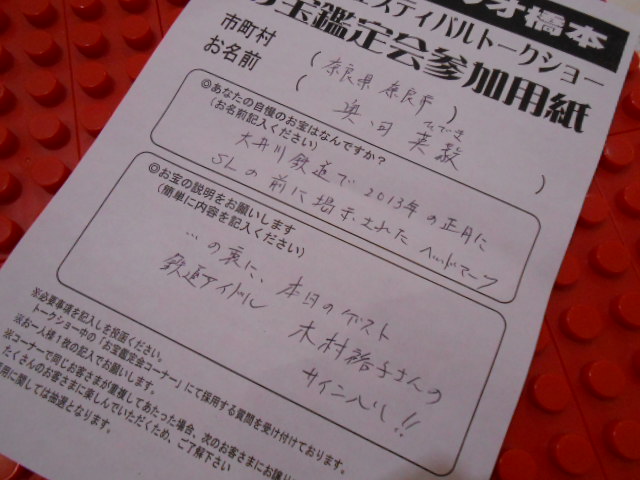 オ橋本
ェスティバルトークショー
宝鑑定会参加用紙
市町村 (奈良県 奈良市)
お名前 (奥田 英毅)
ひでき
◎あなたの自慢のお宝はなんですか?
(お名前記入ください)
大井川鉄道で2013年の正月に
SLの前に掲示されたヘッドマーク
◎お宝の説明をお願いします
(簡単に内容を記入ください)
…の裏に、本日のゲスト
鉄道アイドル 木村裕子さんの
サイン入り!!
※必要事項を記入しを投函ください。
トークショー中の「お宝鑑定会コーナー」にて採用する質問を受け付けております。
※お一人様1枚の記入でお願いします。
※コーナーで同じお客さまが重複してあたった場合、次のお客さまにお譲り
たくさんのお客さまに楽しんでいただくため、ご了解下さい
用に関しては抽選となります。